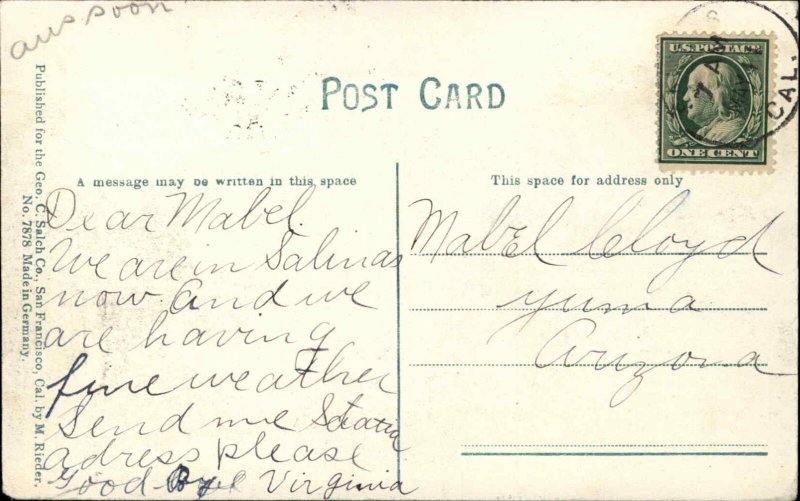 ans soon
POST CARD
U.S. POSTAGE
ONE CENT
CAL.
A message may be written in this space
This space for address only
Dear Mabel.
We are in Salinas
now. And we
are having
fine weather
Send me
adress please
Good Bye Virginia
Mabel Cloyd
Yuma
Arizona
Published for the Geo. C. Salch Co., San Francisco, Cal. by M. Rieder.
No. 7878 Made in Germany.